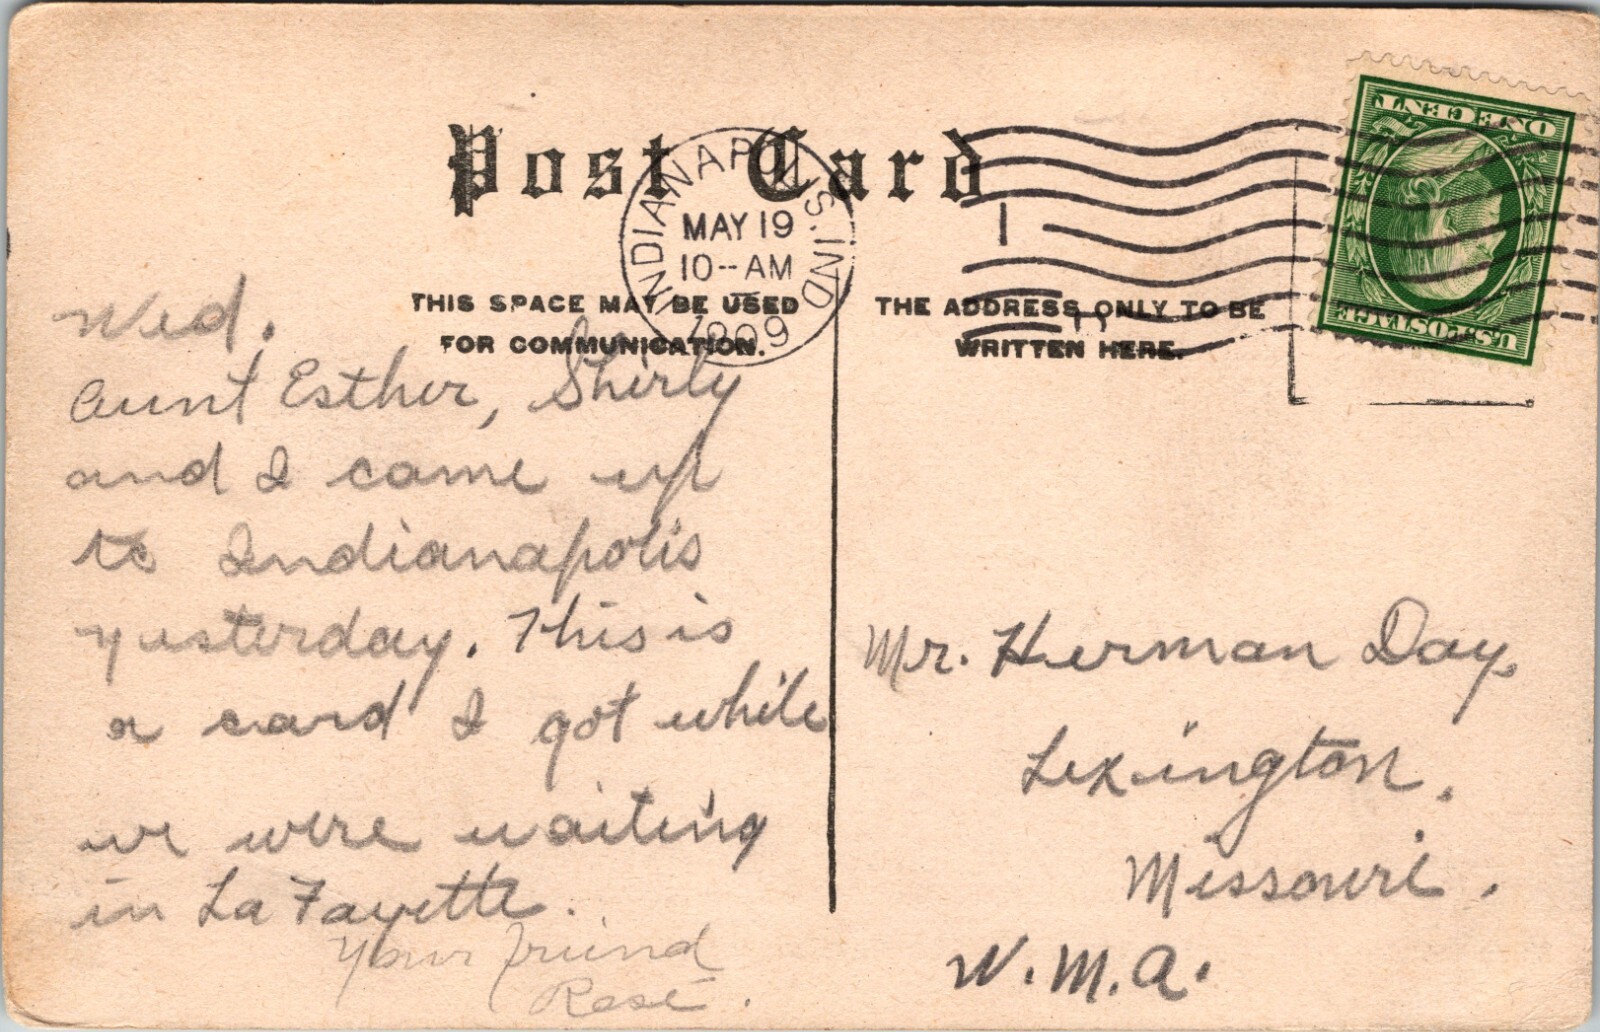 Post Card
INDIANAPOLIS. IND
MAY 19
10--AM
1909
1
ONE CENT
U.S. POSTAGE
THIS SPACE MAY BE USED
FOR COMMUNICATION.
THE ADDRESS ONLY TO BE
WRITTEN HERE.
Wed.
Aunt Esther, Shirly
and I came up
to Indianapolis
yesterday. This is
a card I got while
we were waiting
in La Fayette.
Your friend
Rose.
Mr. Herman Day,
Lexington,
Missouri.
W.M.A.